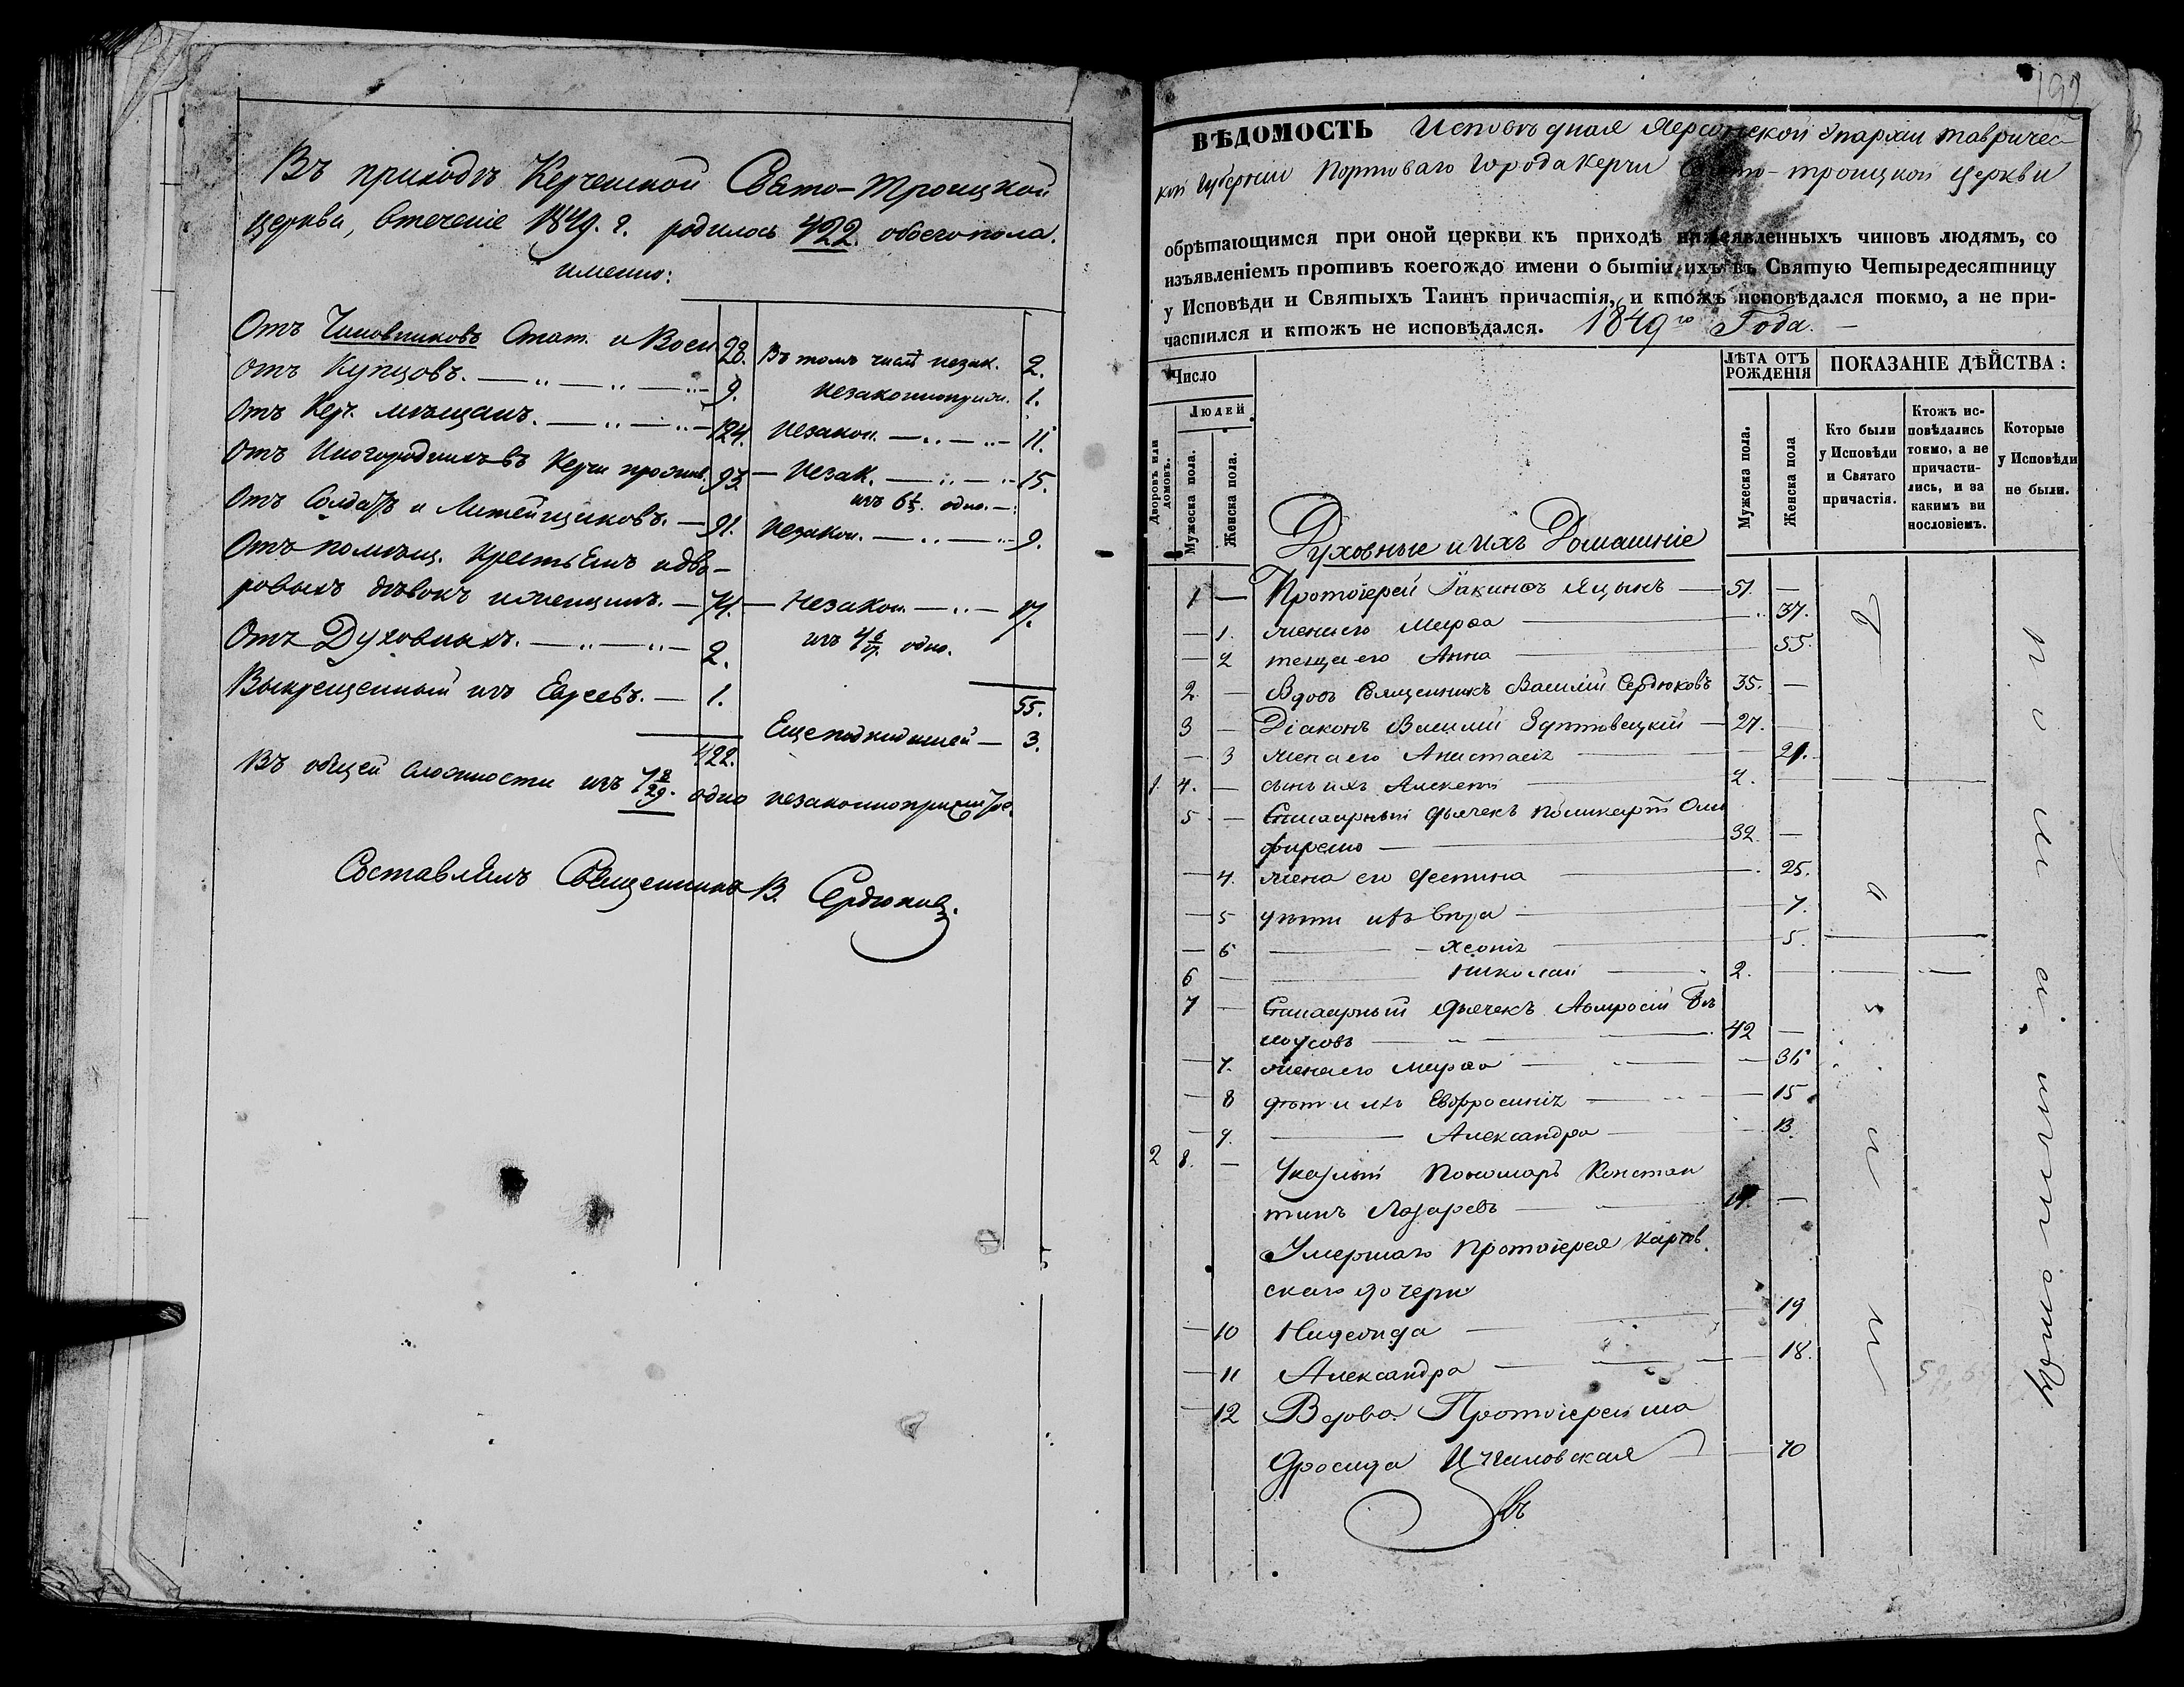 Въ приходѣ Керченской Свято-Троицкой
церкви, втеченіе 1849. г. родилось 422 обоего пола.
именно:
Отъ Чиновниковъ Стат. и Воен 28. Въ томъ числѣ незак. 2.
Отъ Купцовъ. 9. Незаконноприж. 1.
Отъ Кер. мѣщанъ. 124. Незакон. 11.
Отъ Иногородныхъ въ Керчи прожив. 93 Незак. 15.
изъ 6 1/5. одно.
Отъ Солдатъ и Литейщиковъ. 91. Незакон. 9.
Отъ помѣщ. крестьянъ и дво-
ровыхъ дѣвокъ и женщинъ. 74. Незакон. 17.
изъ 4 6/17. одно.
Отъ Духовныхъ. 2.
Выкрещенный изъ Евреевъ. 1.
55.
Еще подкидышей 3.
422.
Въ общей сложности изъ 7 8/29. одно незаконноприжитое.
Составлялъ Священникъ В. Сердюковъ.
192
ВѢДОМОСТЬ Исповѣдная Херсонской Епархіи Тавричес-
кой Губерніи Портоваго Города Керчи Свято-троицкой Церкви
обрѣтающимся при оной церкви къ приходѣ нижеявленныхъ чиновъ людямъ, со
изъявленіемъ противъ коегождо имени о бытіи ихъ въ Святую Четыредесятницу
у Исповѣди и Святыхъ Таинъ причастія, и ктожъ исповѣдался токмо, а не при-
частился и ктожъ не исповѣдался. 1849го Года.
Число
Людей
Дворовъ или домовъ.
Мужеска пола.
Женска пола.
ЛѢТА ОТЪ РОЖДЕНІЯ
Мужеска пола.
Женска пола
ПОКАЗАНІЕ ДѢЙСТВА:
Кто были у Исповѣди и Святаго причастія.
Ктожъ исповѣдались токмо, а не причастились, и за какимъ винословіемъ.
Которые у Исповѣди не были.
Духовные и Ихъ Домашніе
1 — Протоіерей Іакинѳъ Яцынъ 51. —
— 1. жена его Марѳа 37.
— 2 теща его Анна 55.
2. — Вдовъ Священникъ Василій Сердюковъ 35. —
3 — Діаконъ Василій 27. —
— 3 жена его Анастасія 21.
1 4. — сынъ ихъ Алексѣй 2.
5 — дьячекъ Поликарпъ Они
32 —
— 4. жена его 25.
— 5 дѣти ихъ Вѣра 7.
— 6 Хеонія 5.
6 — Николай 2.
7 — дьячекъ Амвросій Бѣ
лоусовъ 42 —
— 7. жена его Марѳа
— 8 дѣти ихъ Евфросинія 15
— 9. Александра 13.
2 8. — Указный Пономарь Констан
тинъ Лазаревъ —
Умершаго Протоіерея
скаго дочери
— 10 Надежда 19
— 11 Александра 18.
— 12 Вдова Протоіерейша
Дросида 70
Были